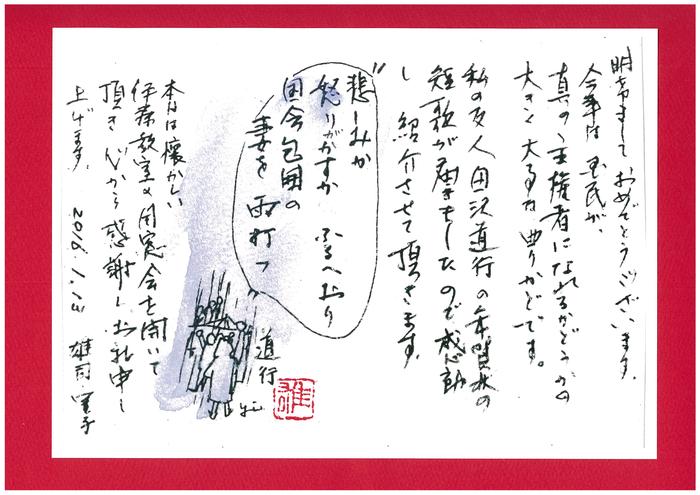 明けまして おめでとうございます。
今年は 国民が、
真の主権者になれるかどうかの
大きな 大事な 曲りかどです。
私の友人 田沢道行の年賀状の
短歌が届きましたので 感動
し 紹介させて頂きます。
"悲しみか
怒りがかすか ふるへおり
国会包囲の
妻を 雨打つ"
道行
雄
yu
本日は懐かしい
伊藤教室の同窓会を開いて
頂き 心から感謝し お礼申し
上げます。 2016.1.
雄司